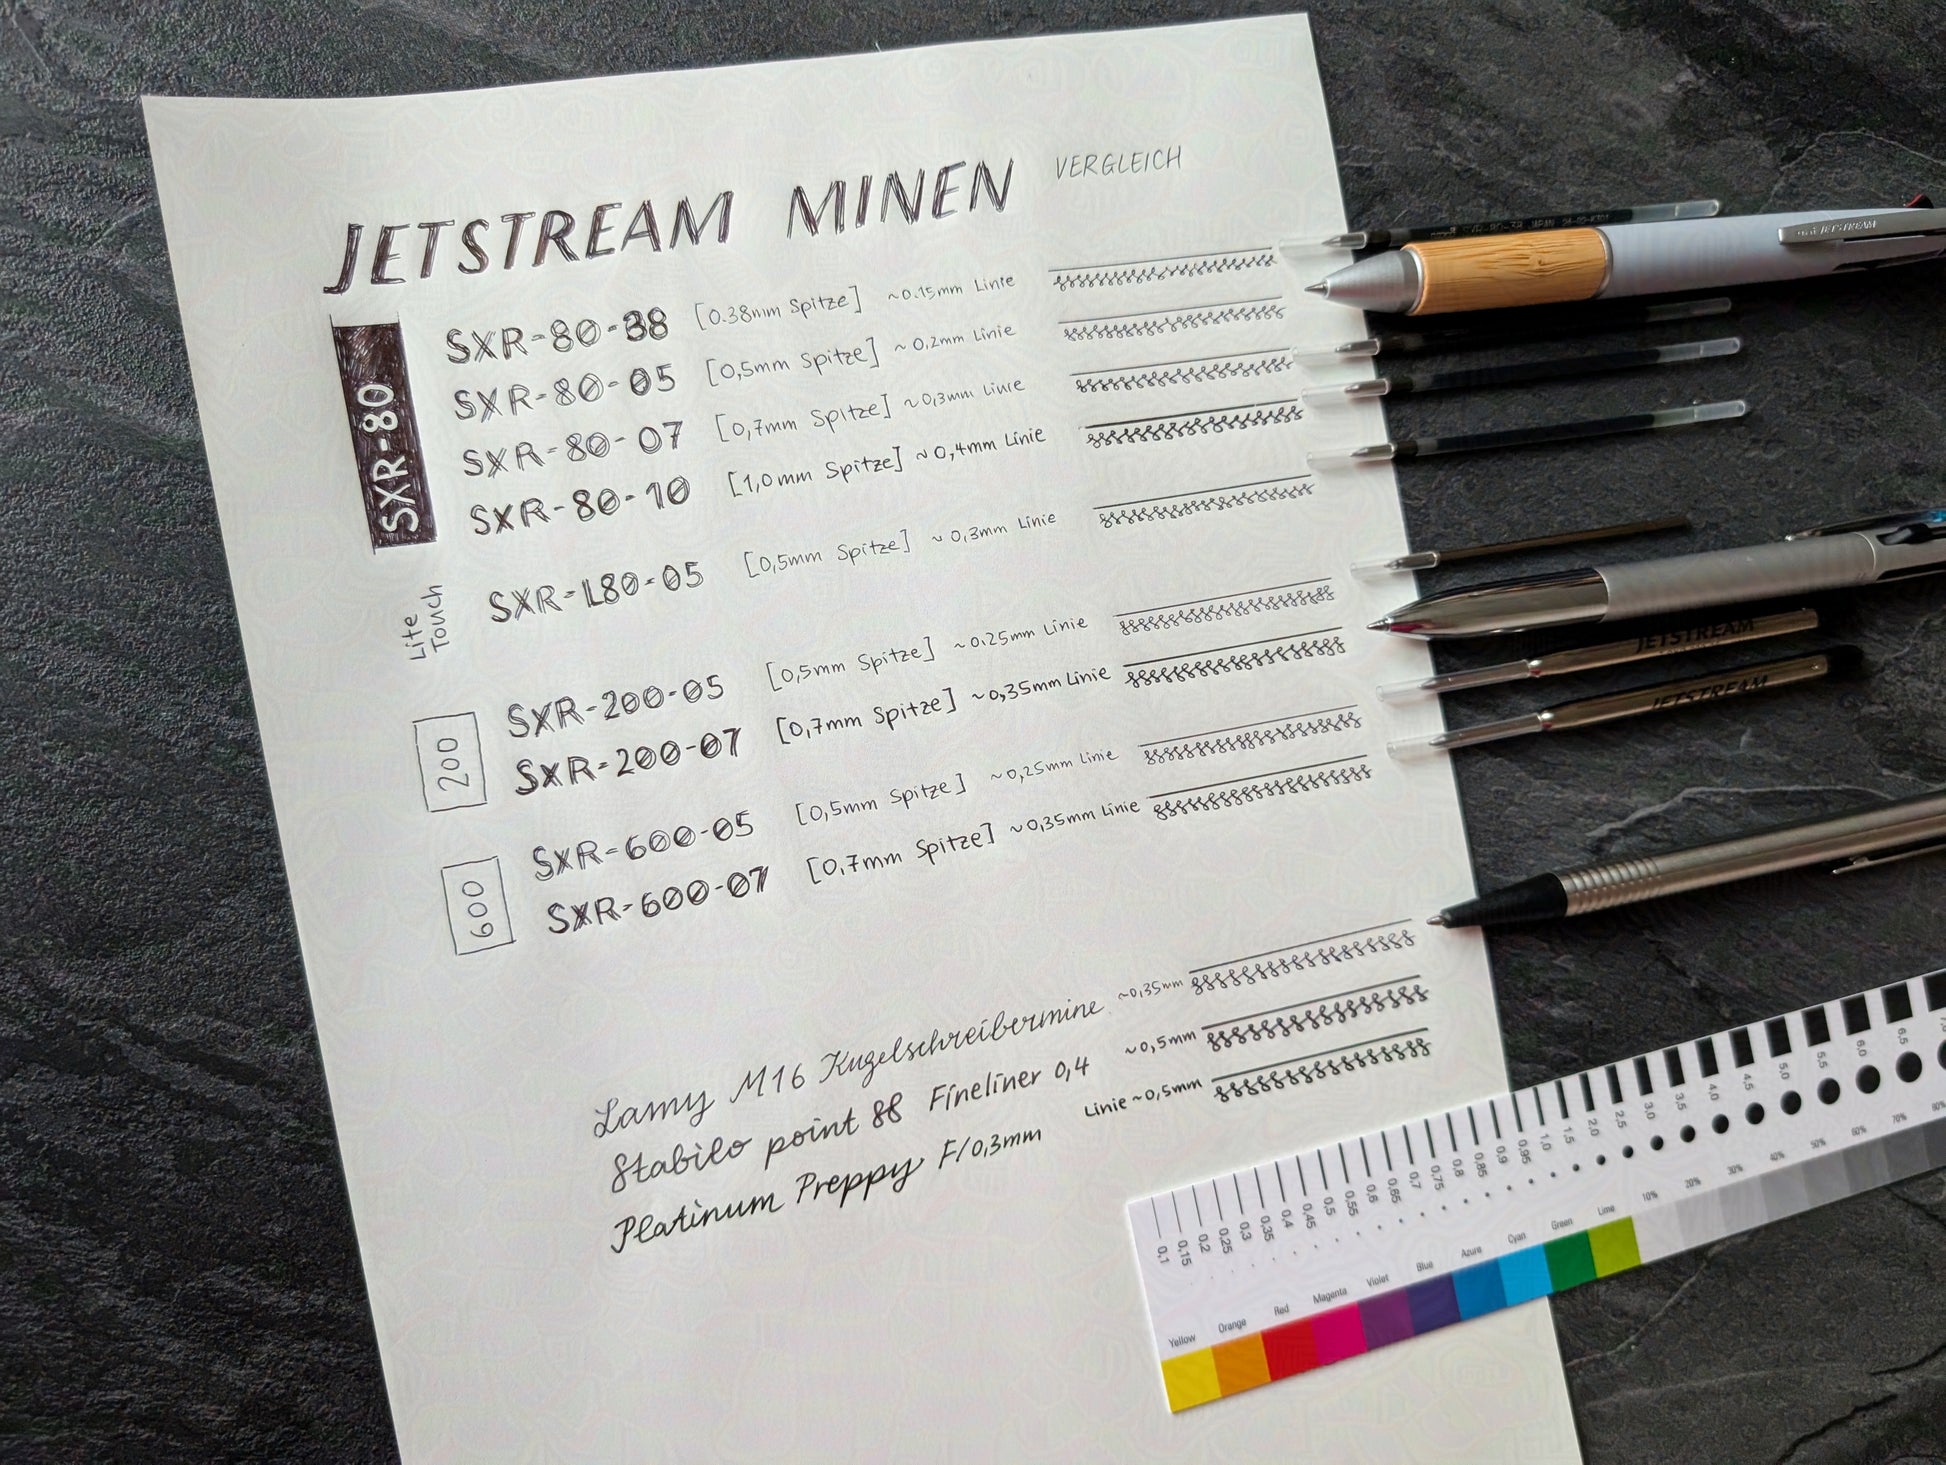 JETSTREAM MINEN VERGLEICH
SXR-80
SXR-80-38 [0.38mm Spitze] ~0.15mm Linie
SXR-80-05 [0,5mm Spitze] ~0,2mm Linie
SXR-80-07 [0,7mm Spitze] ~0,3mm Linie
SXR-80-10 [1,0mm Spitze] ~0,4mm Linie
Lite Touch
SXR-L80-05 [0,5mm Spitze] ~0,3mm Linie
200
SXR-200-05 [0,5mm Spitze] ~0.25mm Linie
SXR-200-07 [0,7mm Spitze] ~0,35mm Linie
600
SXR-600-05 [0,5mm Spitze] ~0,25mm Linie
SXR-600-07 [0,7mm Spitze] ~0,35mm Linie
Lamy M16 Kugelschreibermine ~0,35mm
Stabilo point 88 Fineliner 0,4 ~0,5mm
Platinum Preppy F/0,3mm Linie ~0,5mm
SXR-80-38 JAPAN
JETSTREAM
JETSTREAM
JETSTREAM
0,1 0,15 0,2 0,25 0,3 0,35 0,4 0,45 0,5 0,55 0,6 0,65 0,7 0,75 0,8 0,85 0,9 0,95 1,0 1,5 2,0 2,5 3,0 3,5 4,0 4,5 5,0 5,5 6,0 6,5
Yellow Orange Red Magenta Violet Blue Azure Cyan Green Lime 10% 20% 30% 40% 50% 60% 70%